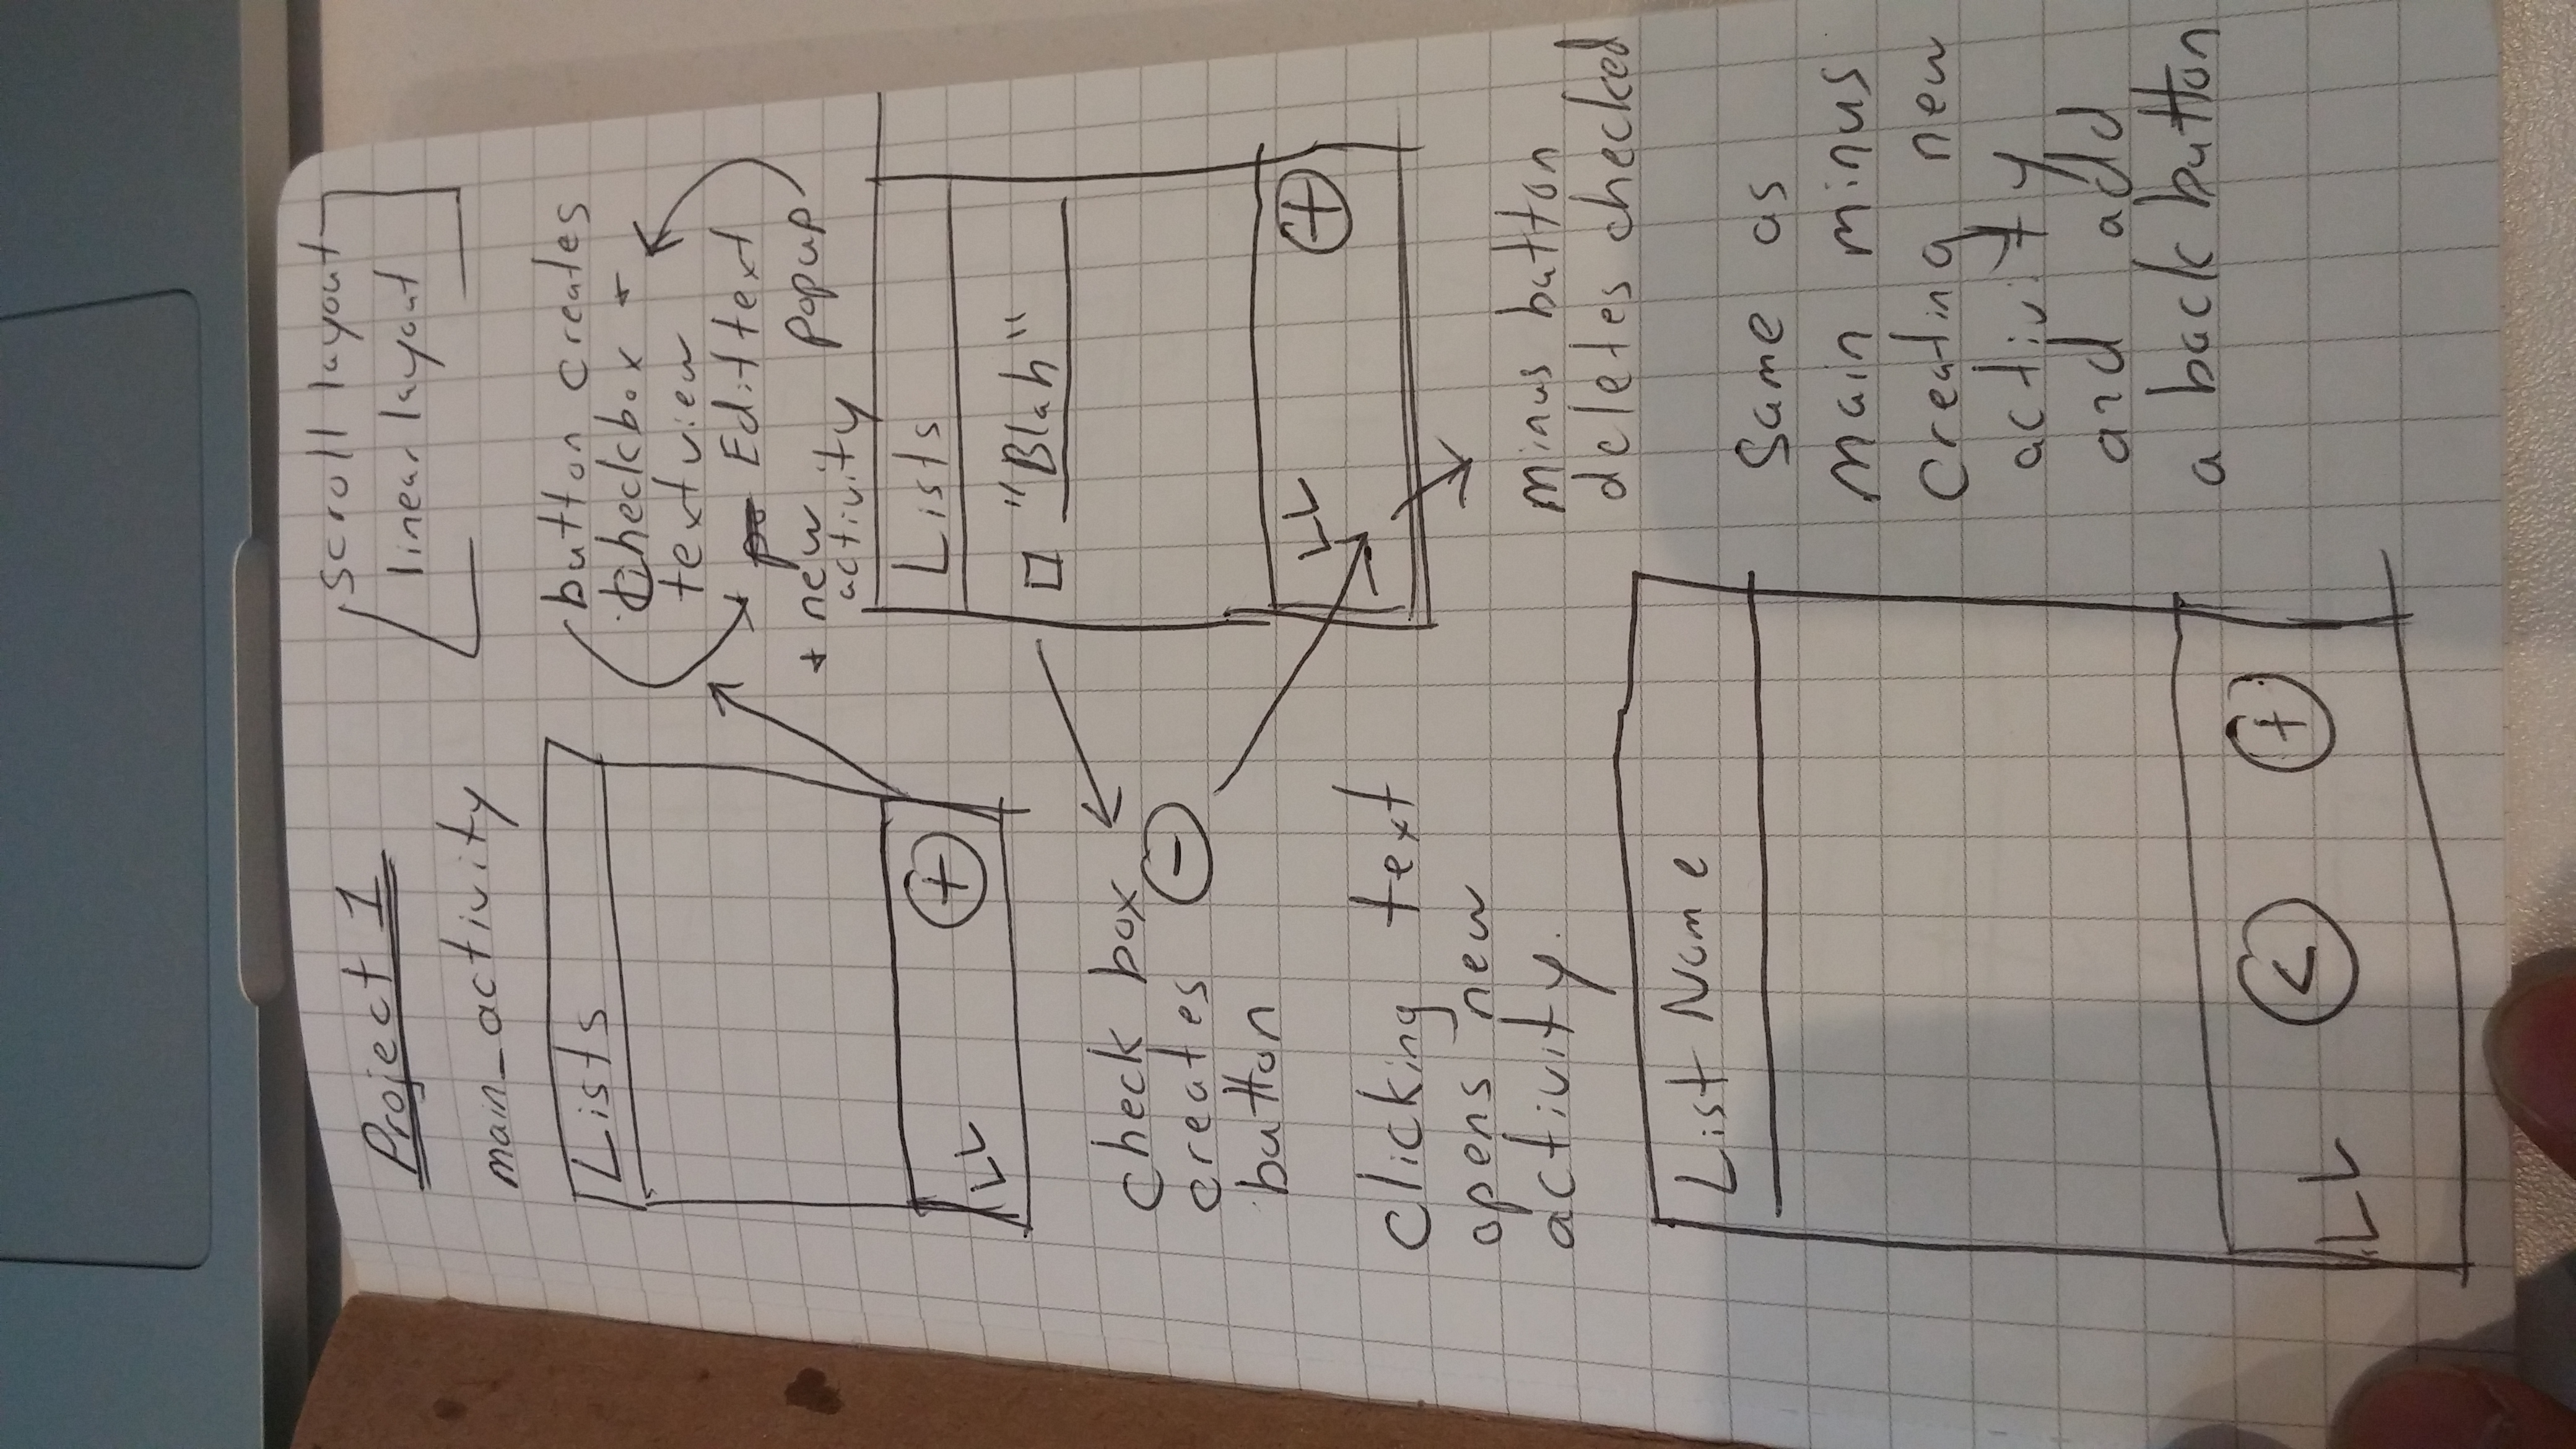 Project 1
scroll layout
linear layout
main_activity
Lists
LL
+
button creates
checkbox +
textview
Edit text
popup
+ new
activity
Lists
"Blah"
LL
+
check box
creates
button
-
clicking text
opens new
activity.
minus button
deletes checked
List Name
LL
<
+
Same as
main minus
creating new
activity
and add
a back button